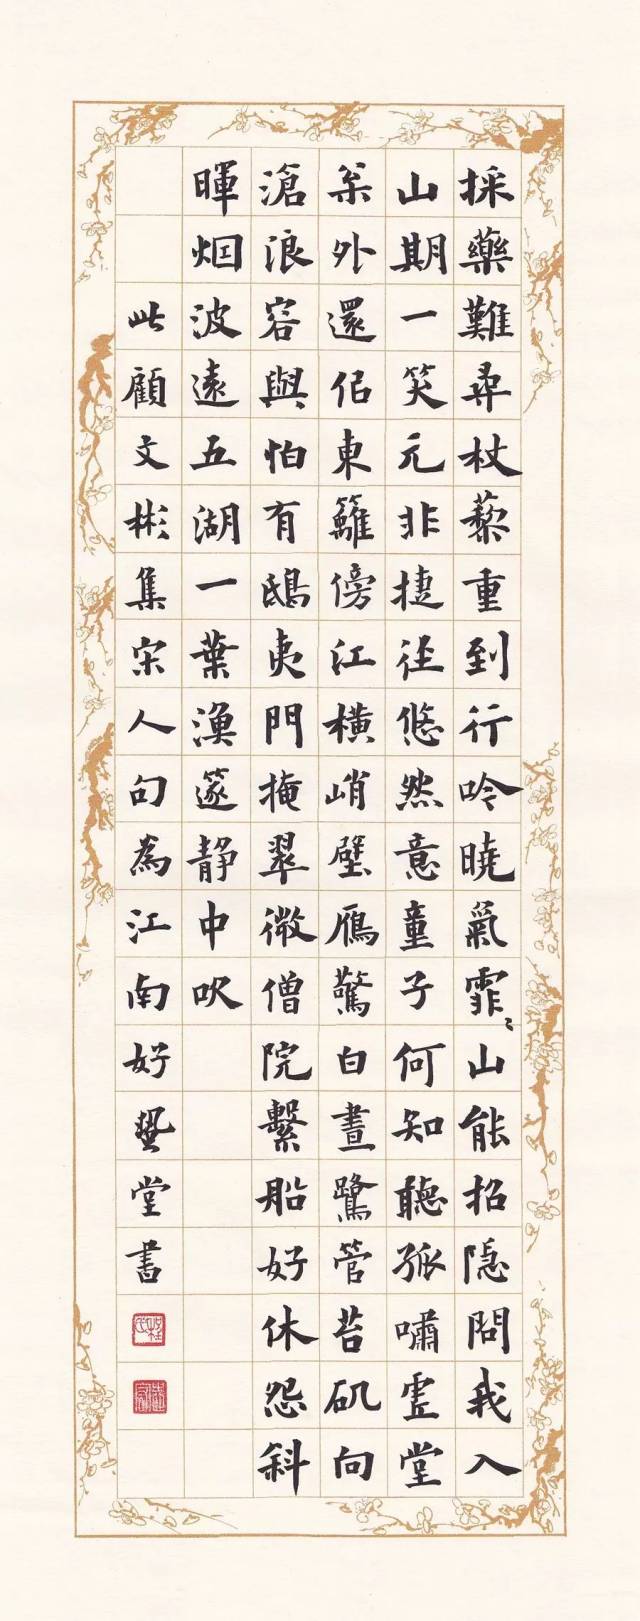 採藥難尋杖藜重到行吟曉氣霏〻山能招隱問我入
山期一笑元非捷徑悠然意童子何知聽孤嘯虛堂
名外還侶東籬傍江橫峭壁鴈驚白晝鷺管苔磯向
滄浪容與怕有鴟夷門掩翠微僧院繫船好休怨斜
暉烟波遠五湖一葉漁篴靜中吹
此顧文彬集宋人句為江南好 堂書